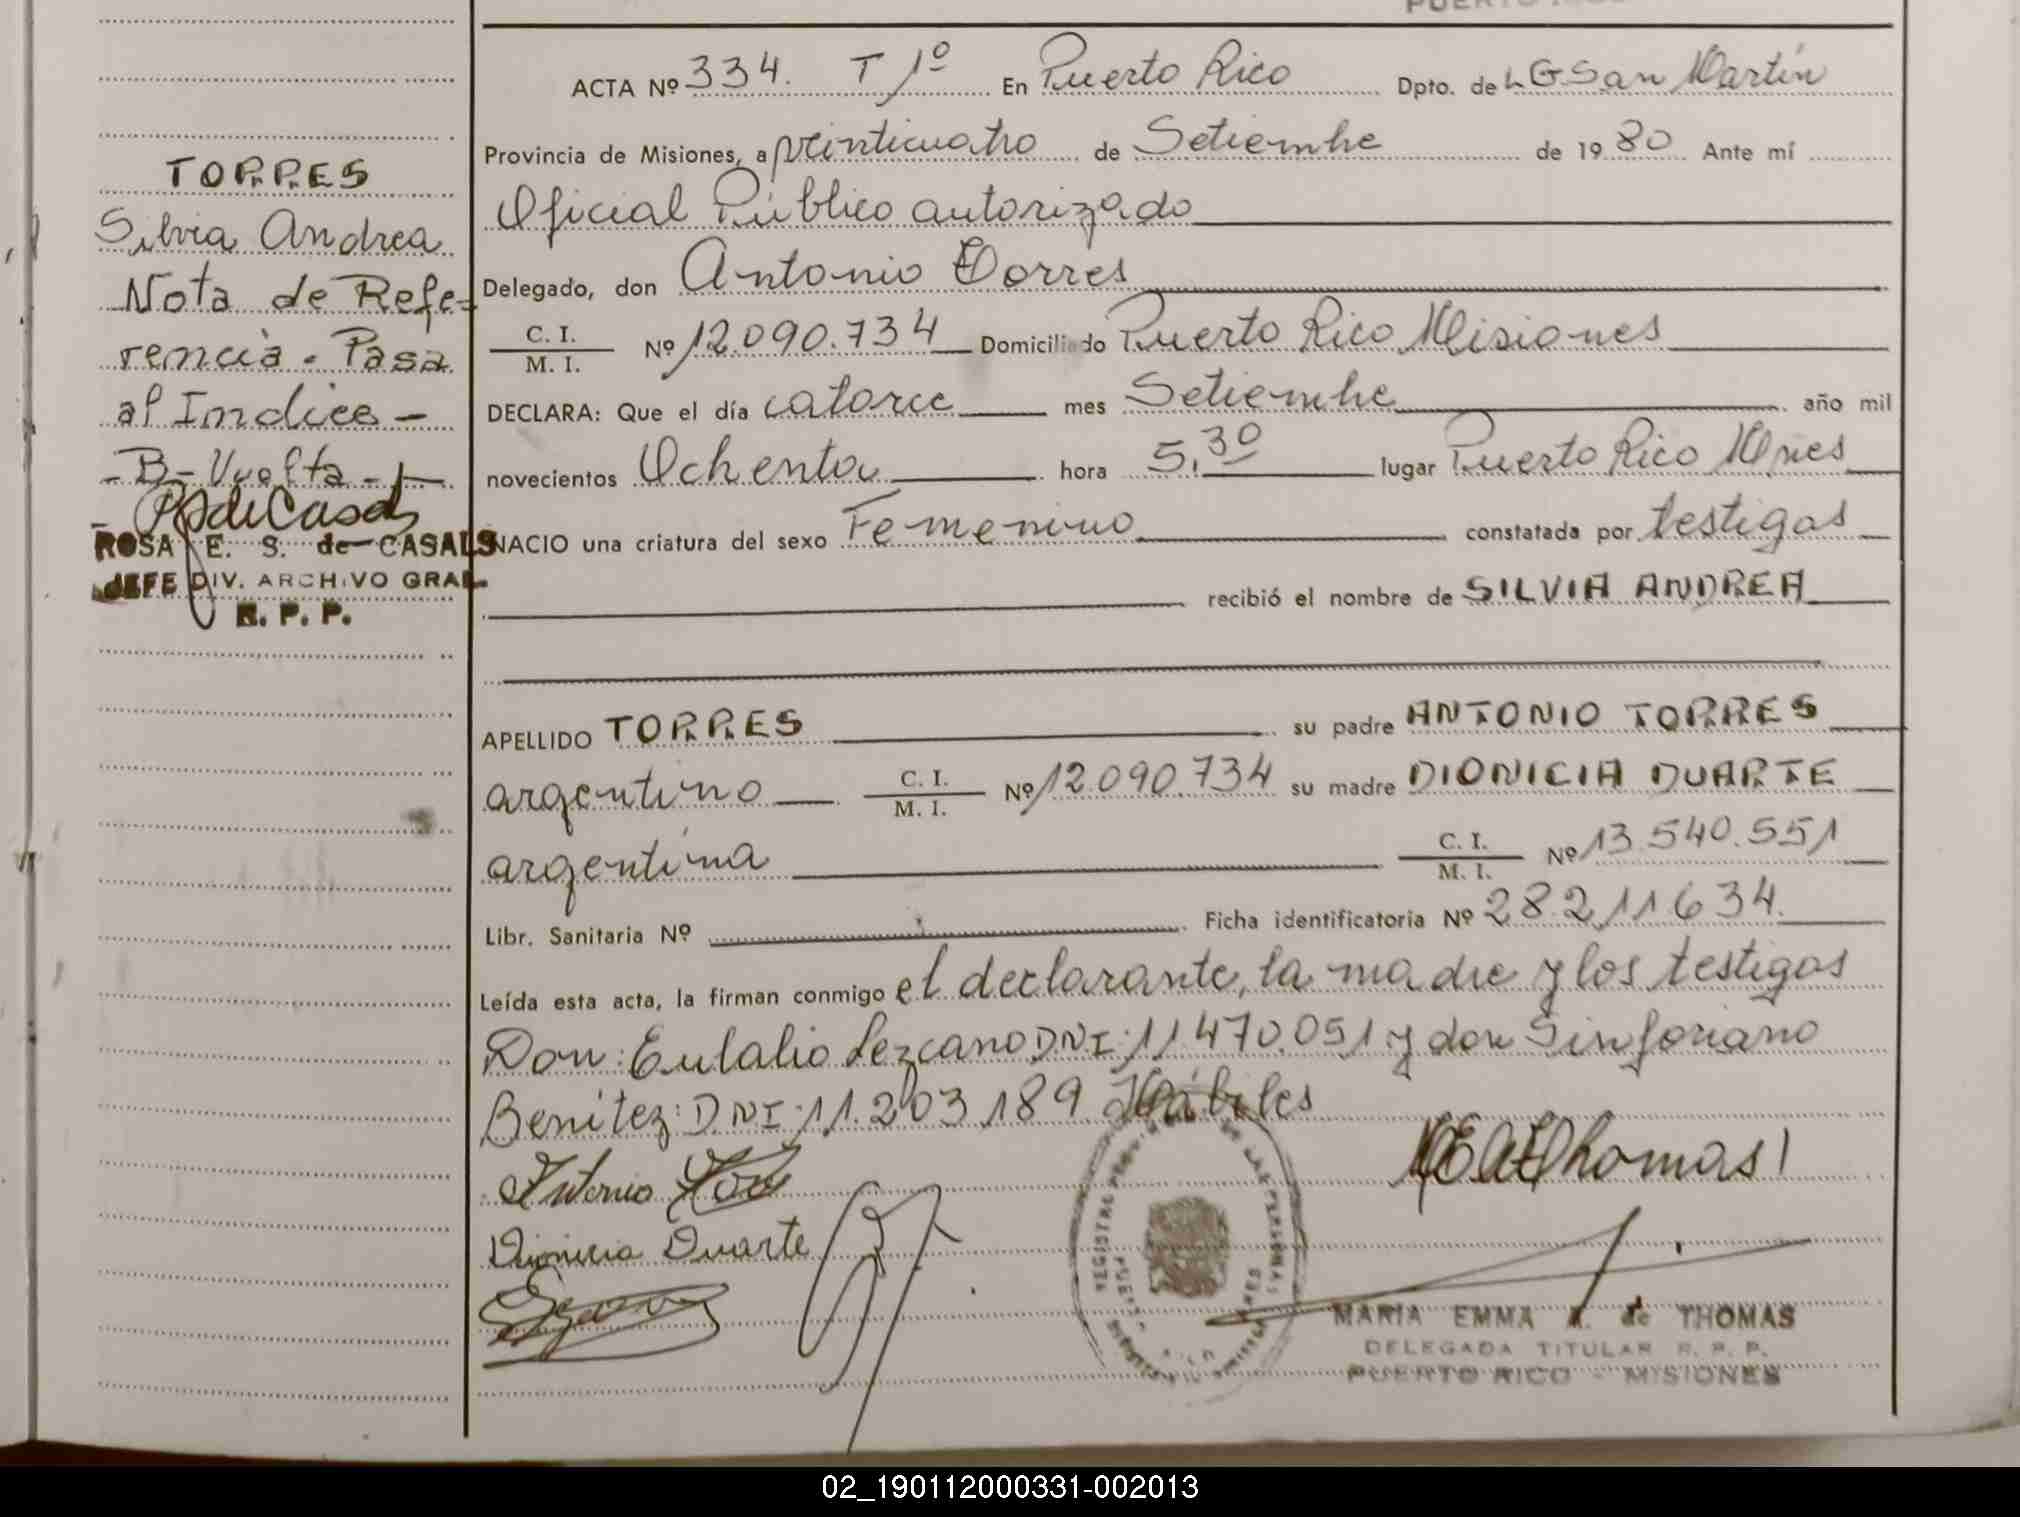 ACTA Nº 334. T 1º En Puerto Rico Dpto. de L G San Martín
Provincia de Misiones, a veinticuatro de Setiembre de 1980 Ante mí
Oficial Público autorizado
Delegado, don Antonio Torres
C. I.
M. I. Nº 12.090.734 Domiciliado Puerto Rico Misiones
DECLARA: Que el día catorce mes Setiembre año mil
novecientos Ochenta hora 5,30 lugar Puerto Rico Mnes
NACIO una criatura del sexo Femenino constatada por testigos
recibió el nombre de SILVIA ANDREA
APELLIDO TORRES su padre ANTONIO TORRES
argentino C. I.
M. I. Nº 12.090.734 su madre DIONICIA DUARTE
argentina C. I.
M. I. Nº 13.540.551
Libr. Sanitaria Nº Ficha identificatoria Nº 28.211634.
Leída esta acta, la firman conmigo el declarante, la madre y los testigos
Don: Eulalio Lezcano D.N.I: 11470.051 y don Sinforiano
Benítez: D.N.I: 11.203.189 Hábiles
Antonio
Dionicia Duarte
Thomas
MARIA EMMA A. de THOMAS
DELEGADA TITULAR R. P. P.
PUERTO RICO - MISIONES
TORRES
Silvia Andrea
Nota de Refe-
rencia - Pasa
al Indice -
- B - Vuelta -
ROSA E. S. de CASALS
JEFE DIV. ARCHIVO GRAL.
R. P. P.
02_190112000331-002013